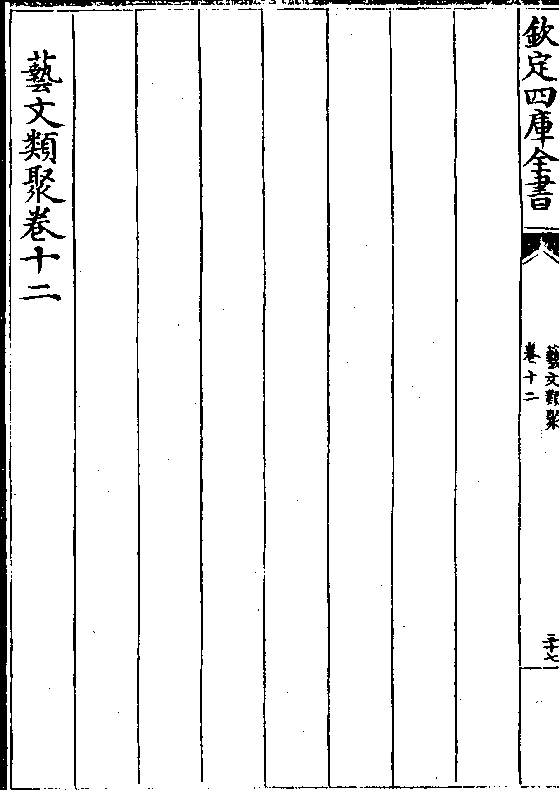 欽定四庫全書
藝文類聚
卷十二
三十七
藝文類聚卷十二